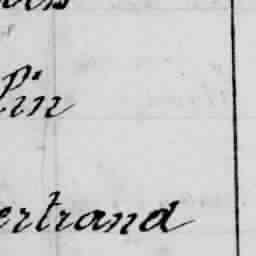 lin
ertrand